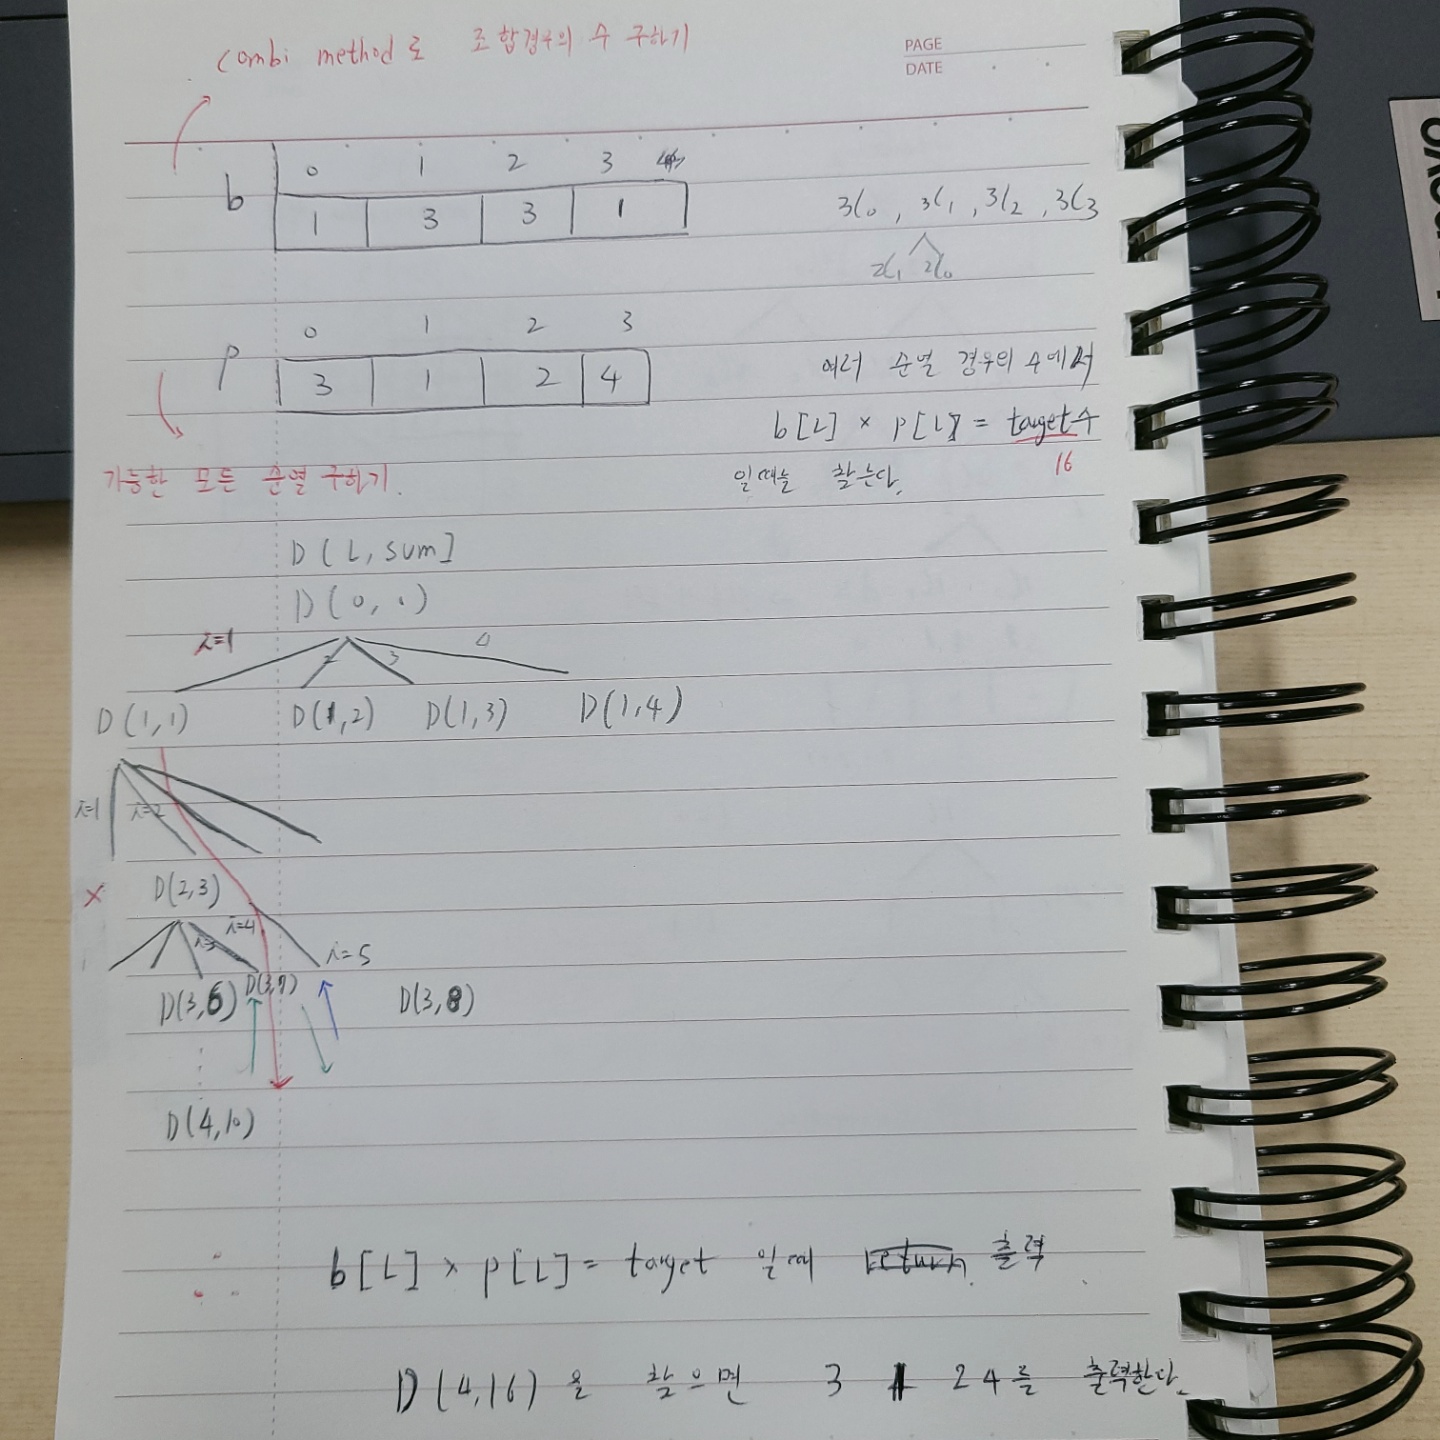 combi method로 조합경우의 수 구하기
PAGE
DATE
0 1 2 3
b 1 3 3 1
3C0, 3C1, 3C2, 3C3
2C1 2C0
0 1 2 3
p 3 1 2 4
여러 순열 경우의 수에서
b[L] × p[L] = target수
16
일때는 찾는다.
가능한 모든 순열 구하기.
D[L, sum]
D(0, 1)
i=1 2 3 4
D(1,1) D(1,2) D(1,3) D(1,4)
i=1 i=2
X D(2,3)
i=3 i=4 i=5
D(3,6) D(3,7) D(3,8)
D(4,10)
b[L] × p[L] = target 일때 return 출력
D(4,16)을 찾으면 3 1 2 4를 출력한다.